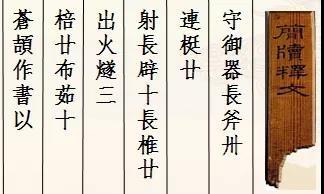 簡牘釋文
守御器長斧卅
連梃廿
射長辟十長椎廿
出火燧三
棓廿布茹十
蒼頡作書以